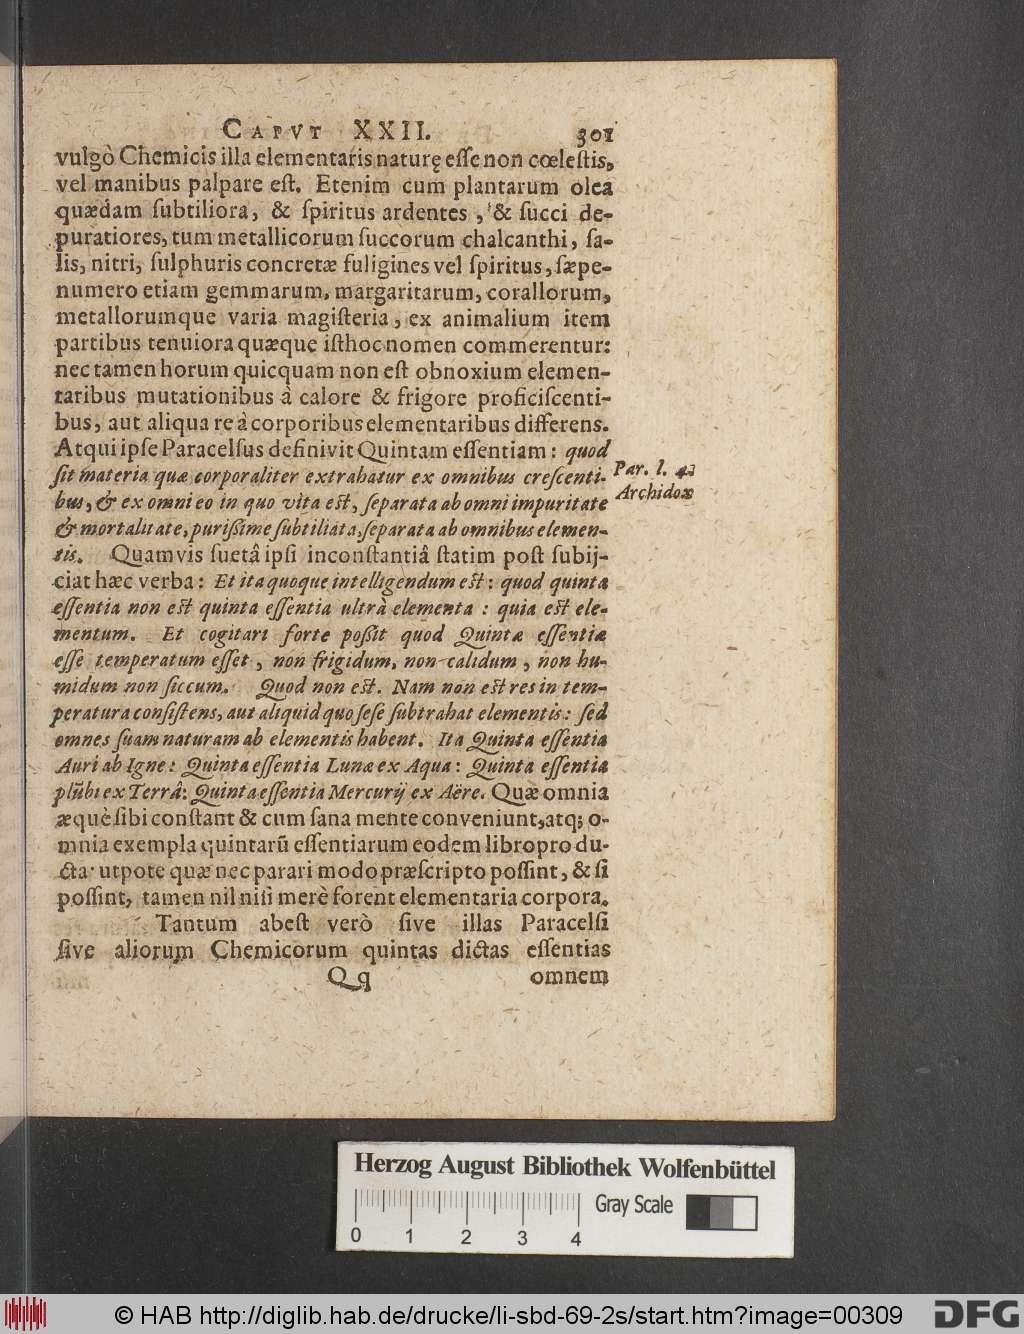 CAPVT XXII. 301
vulgò Chemicis illa elementaris naturę eſſe non cœleſtis,
vel manibus palpare eſt. Etenim cum plantarum olea
quædam ſubtiliora, & ſpiritus ardentes, & ſucci de-
puratiores, tum metallicorum ſuccorum chalcanthi, ſa-
lis, nitri, ſulphuris concretæ fuligines vel ſpiritus, ſæpe-
numero etiam gemmarum, margaritarum, corallorum,
metallorumque varia magiſteria, ex animalium item
partibus tenuiora quæque iſthoc nomen commerentur:
nec tamen horum quicquam non eſt obnoxium elemen-
taribus mutationibus à calore & frigore proficiſcenti-
bus, aut aliqua re à corporibus elementaribus differens.
Atqui ipſe Paracelſus definivit Quintam eſſentiam: quod
ſit materia quæ corporaliter extrahatur ex omnibus creſcenti-
bus, & ex omni eo in quo vita eſt, ſeparata ab omni impuritate
& mortalitate, puriſſime ſubtiliata, ſeparata ab omnibus elemen-
tis. Quamvis ſuetâ ipſi inconſtantiâ ſtatim poſt ſubij-
ciat hæc verba: Et ita quoque intelligendum eſt: quod quinta
eſſentia non eſt quinta eſſentia ultrà elementa : quia eſt ele-
mentum. Et cogitari forte poſſit quod Quintæ eſſentiæ
eſſe temperatum eſſet, non frigidum, non calidum, non hu-
midum non ſiccum. Quod non eſt. Nam non eſt res in tem-
peratura conſiſtens, aut aliquid quo ſeſe ſubtrahat elementis: ſed
omnes ſuam naturam ab elementis habent. Ita Quinta eſſentia
Auri ab Igne: Quinta eſſentia Lunæ ex Aqua: Quinta eſſentia
plūbi ex Terrâ: Quinta eſſentia Mercurij ex Aëre. Quæ omnia
æquè ſibi conſtant & cum ſana mente conveniunt, atq; o-
mnia exempla quintarū eſſentiarum eodem libro pro du-
cta· utpote quæ nec parari modo præſcripto poſſint, & ſi
poſſint, tamen nil niſi merè forent elementaria corpora.
Tantum abeſt verò ſive illas Paracelſi
ſive aliorum Chemicorum quintas dictas eſſentias
Qq omnem
Par. l. 4.
Archidox
Herzog August Bibliothek Wolfenbüttel
Gray Scale
0 1 2 3 4
© HAB http://diglib.hab.de/drucke/li-sbd-69-2s/start.htm?image=00309
DFG